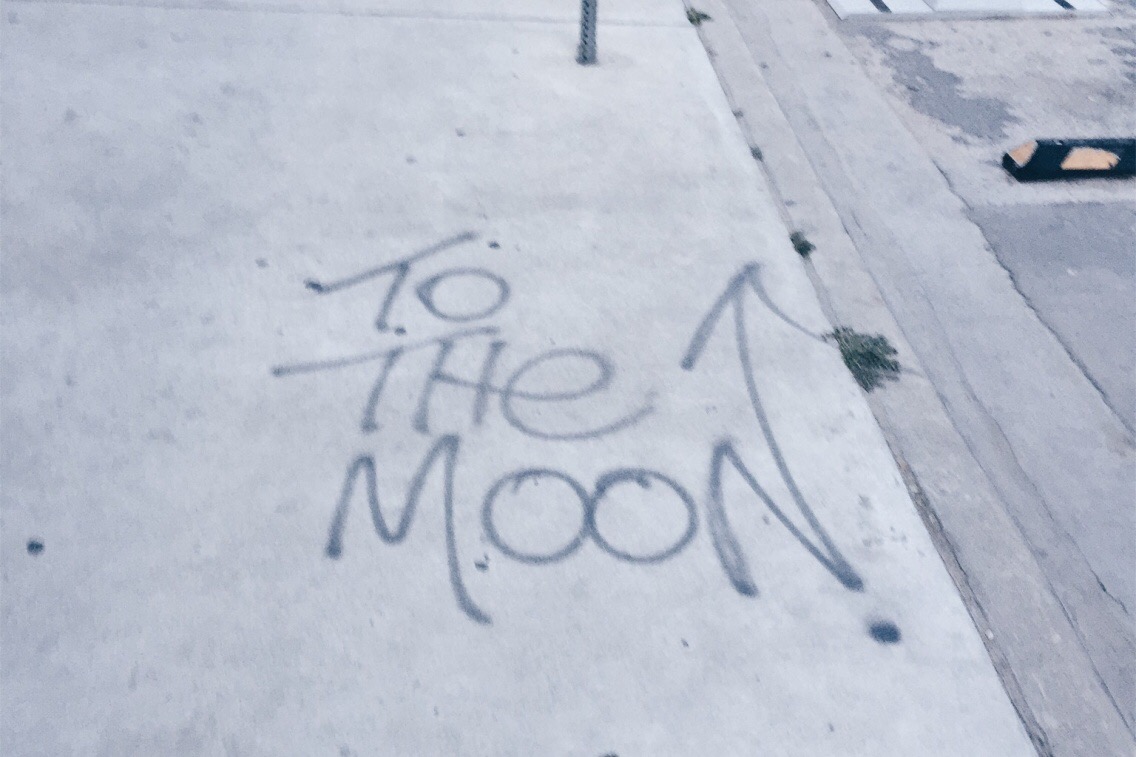 TO
THe
MOON.